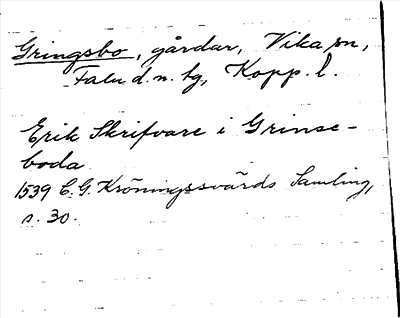 Gringsbo, gårdar, Vika sn,
Falu d. n. tg, Kopp. l.
Erik Skrifvare i Grinse-
boda
1539 C. G. Kröningssvärds Samling,
s. 30.